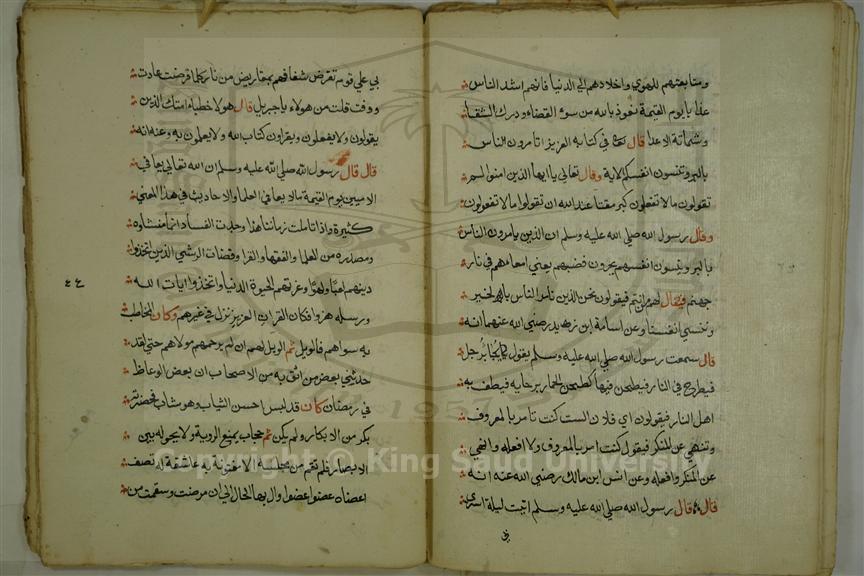 ومتابعتهم للهوي واخلادهم الي الدنيا فانهم اشد الناس
عذابا يوم القيمة نعوذ بالله من سوء القضاء ودرك الشقا
وشماتة الاعدا قال تعالى في كتابه العزيز اتامرون الناس
بالبر وتنسون انفسكم الاية وقال تعالي ياايها الذين امنوا لم
تقولون مالا تفعلون كبر مقتا عند الله ان تقولوا مالا تفعلون
وقال رسول الله صلي الله عليه وسلم ان الذين يامرون الناس
بالبر وينسون انفسهم يجرون قصبهم يعني امعاءهم في نار
جهنم فيقال لهم من انتم فيقولون نحن الذين نامر الناس بالخير
وننسي انفسنا وعن اسامة ابن زيد رضي الله عنهما انه
قال سمعت رسول الله صلي الله عليه وسلم يقول يجا برجل
فيطرح في النار فيطحن فيها كطحن الحمار برحايه فيطف به
اهل النار فيقولون اي فلان الست كنت تامر بالمعروف
وتنهي عن المنكر فيقول كنت امر بالمعروف ولا افعله وانهي
عن المنكر وافعله وعن انس ابن مالك رضي الله عنه انه
قال قال رسول الله صلي الله عليه وسلم اتيت ليلة اسري
بي
بي علي قوم تقرض شفاههم بمقاريض من نار كلما قرضت عادت
ووفت قلت من هولاء ياجبريل قال هولا خطباء امتك الذين
يقولون ولا يفعلون ويقراون كتاب الله ولا يعلمون به وعنه انه
قال قال رسول الله صلي الله عليه وسلم ان الله تعالي يعافي
الاميين يوم القيمة مالا يعافي العلما والاحاديث في هذا المعني
كثيرة واذا تاملت زماننا هذا وجدت الفساد انما منشاوه
ومصدره من العلما والفقها والقرا وقضات الرشي الذين اتخذوا
دينهم لعبا ولهوا وغرتهم الحيوة الدنيا واتخذوا ايات الله
ورسله هزوا فكان القران العزيز نزل في غيرهم وكان المخاطب
به سواهم فالويل ثم الويل لهم ان لم يرحمهم مولاهم حتي لقد
حدثني بعض من اثق به من الاصحاب ان بعض الوعاظ
في رمضان كان قد لبس احسن الثياب وهو شاب فحضرته
بكر من الابكار ولم يكن ثم حجاب يمنع الروية ولا يحول بين
الابصار فلم تقم من مجلسه الا مفتونة به عاشقة له تصف
اعضاه عضوا عضوا وال بها الحال الي ان مرضت وسقمت من
٤٤
Copyright © King Saud University
1957